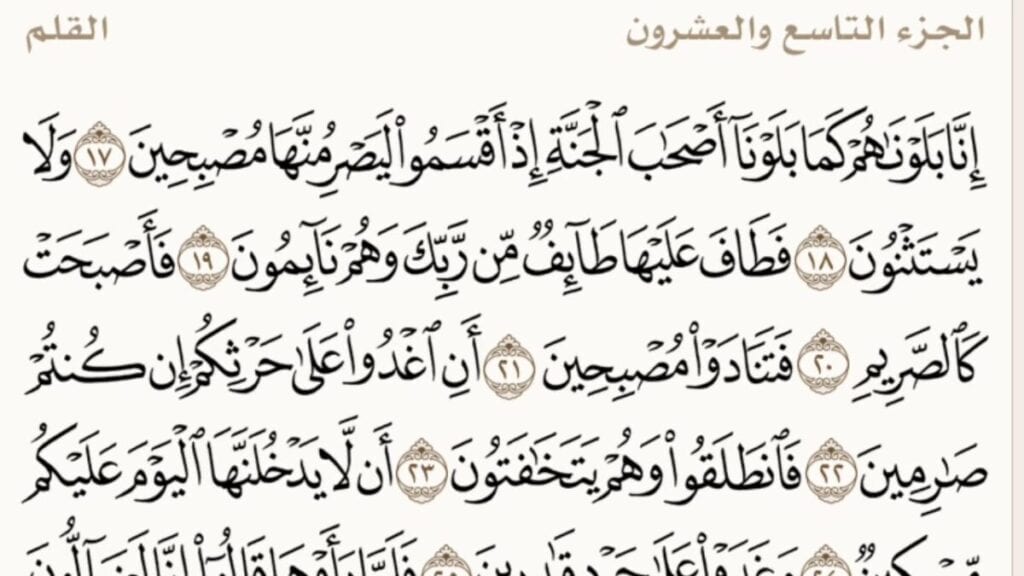 الجزء التاسع والعشرون
القلم
إِنَّا بَلَوْنَٰهُمْ كَمَا بَلَوْنَآ أَصْحَٰبَ ٱلْجَنَّةِ إِذْ أَقْسَمُوا۟ لَيَصْرِمُنَّهَا مُصْبِحِينَ ١٧ وَلَا
يَسْتَثْنُونَ ١٨ فَطَافَ عَلَيْهَا طَآئِفٌ مِّن رَّبِّكَ وَهُمْ نَآئِمُونَ ١٩ فَأَصْبَحَتْ
كَٱلصَّرِيمِ ٢٠ فَتَنَادَوْا۟ مُصْبِحِينَ ٢١ أَنِ ٱغْدُوا۟ عَلَىٰ حَرْثِكُمْ إِن كُنتُمْ
صَٰرِمِينَ ٢٢ فَٱنطَلَقُوا۟ وَهُمْ يَتَخَٰفَتُونَ ٢٣ أَن لَّا يَدْخُلَنَّهَا ٱلْيَوْمَ عَلَيْكُم
مِّسْكِينٌ ٢٤ وَغَدَوْا۟ عَلَىٰ حَرْدٍ قَٰدِرِينَ ٢٥ فَلَمَّا رَأَوْهَا قَالُوٓا۟ إِنَّا لَضَآلُّونَ